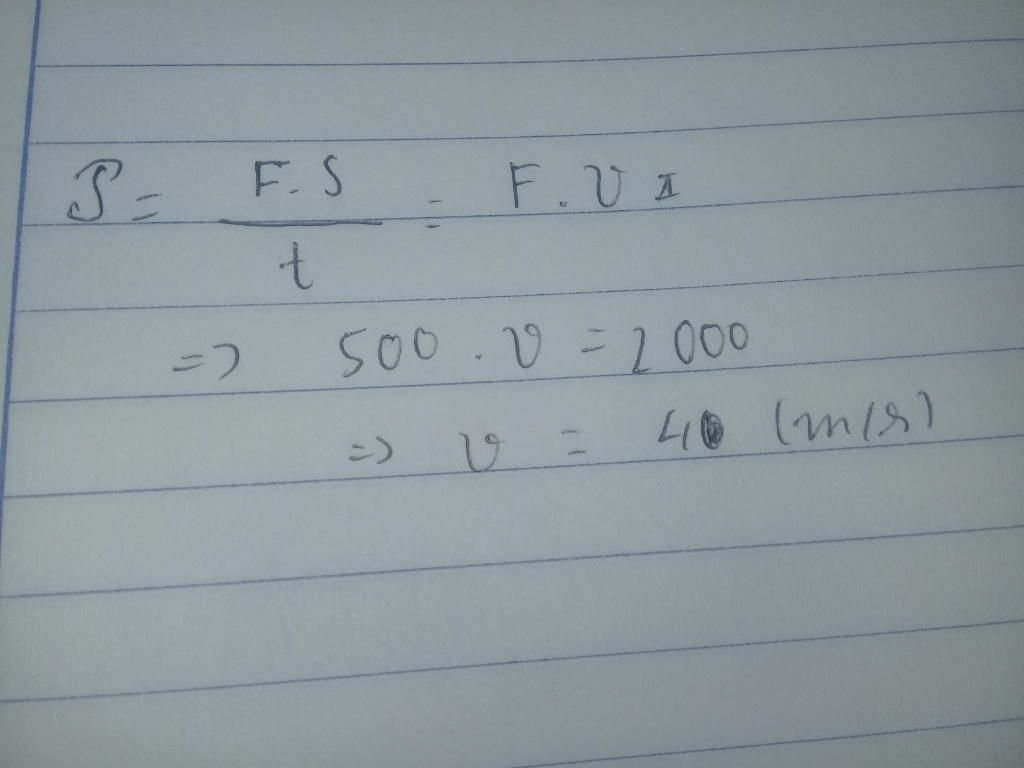 P = F.S / t = F.v
=> 500 . v = 2000
=> v = 4 (m/s)